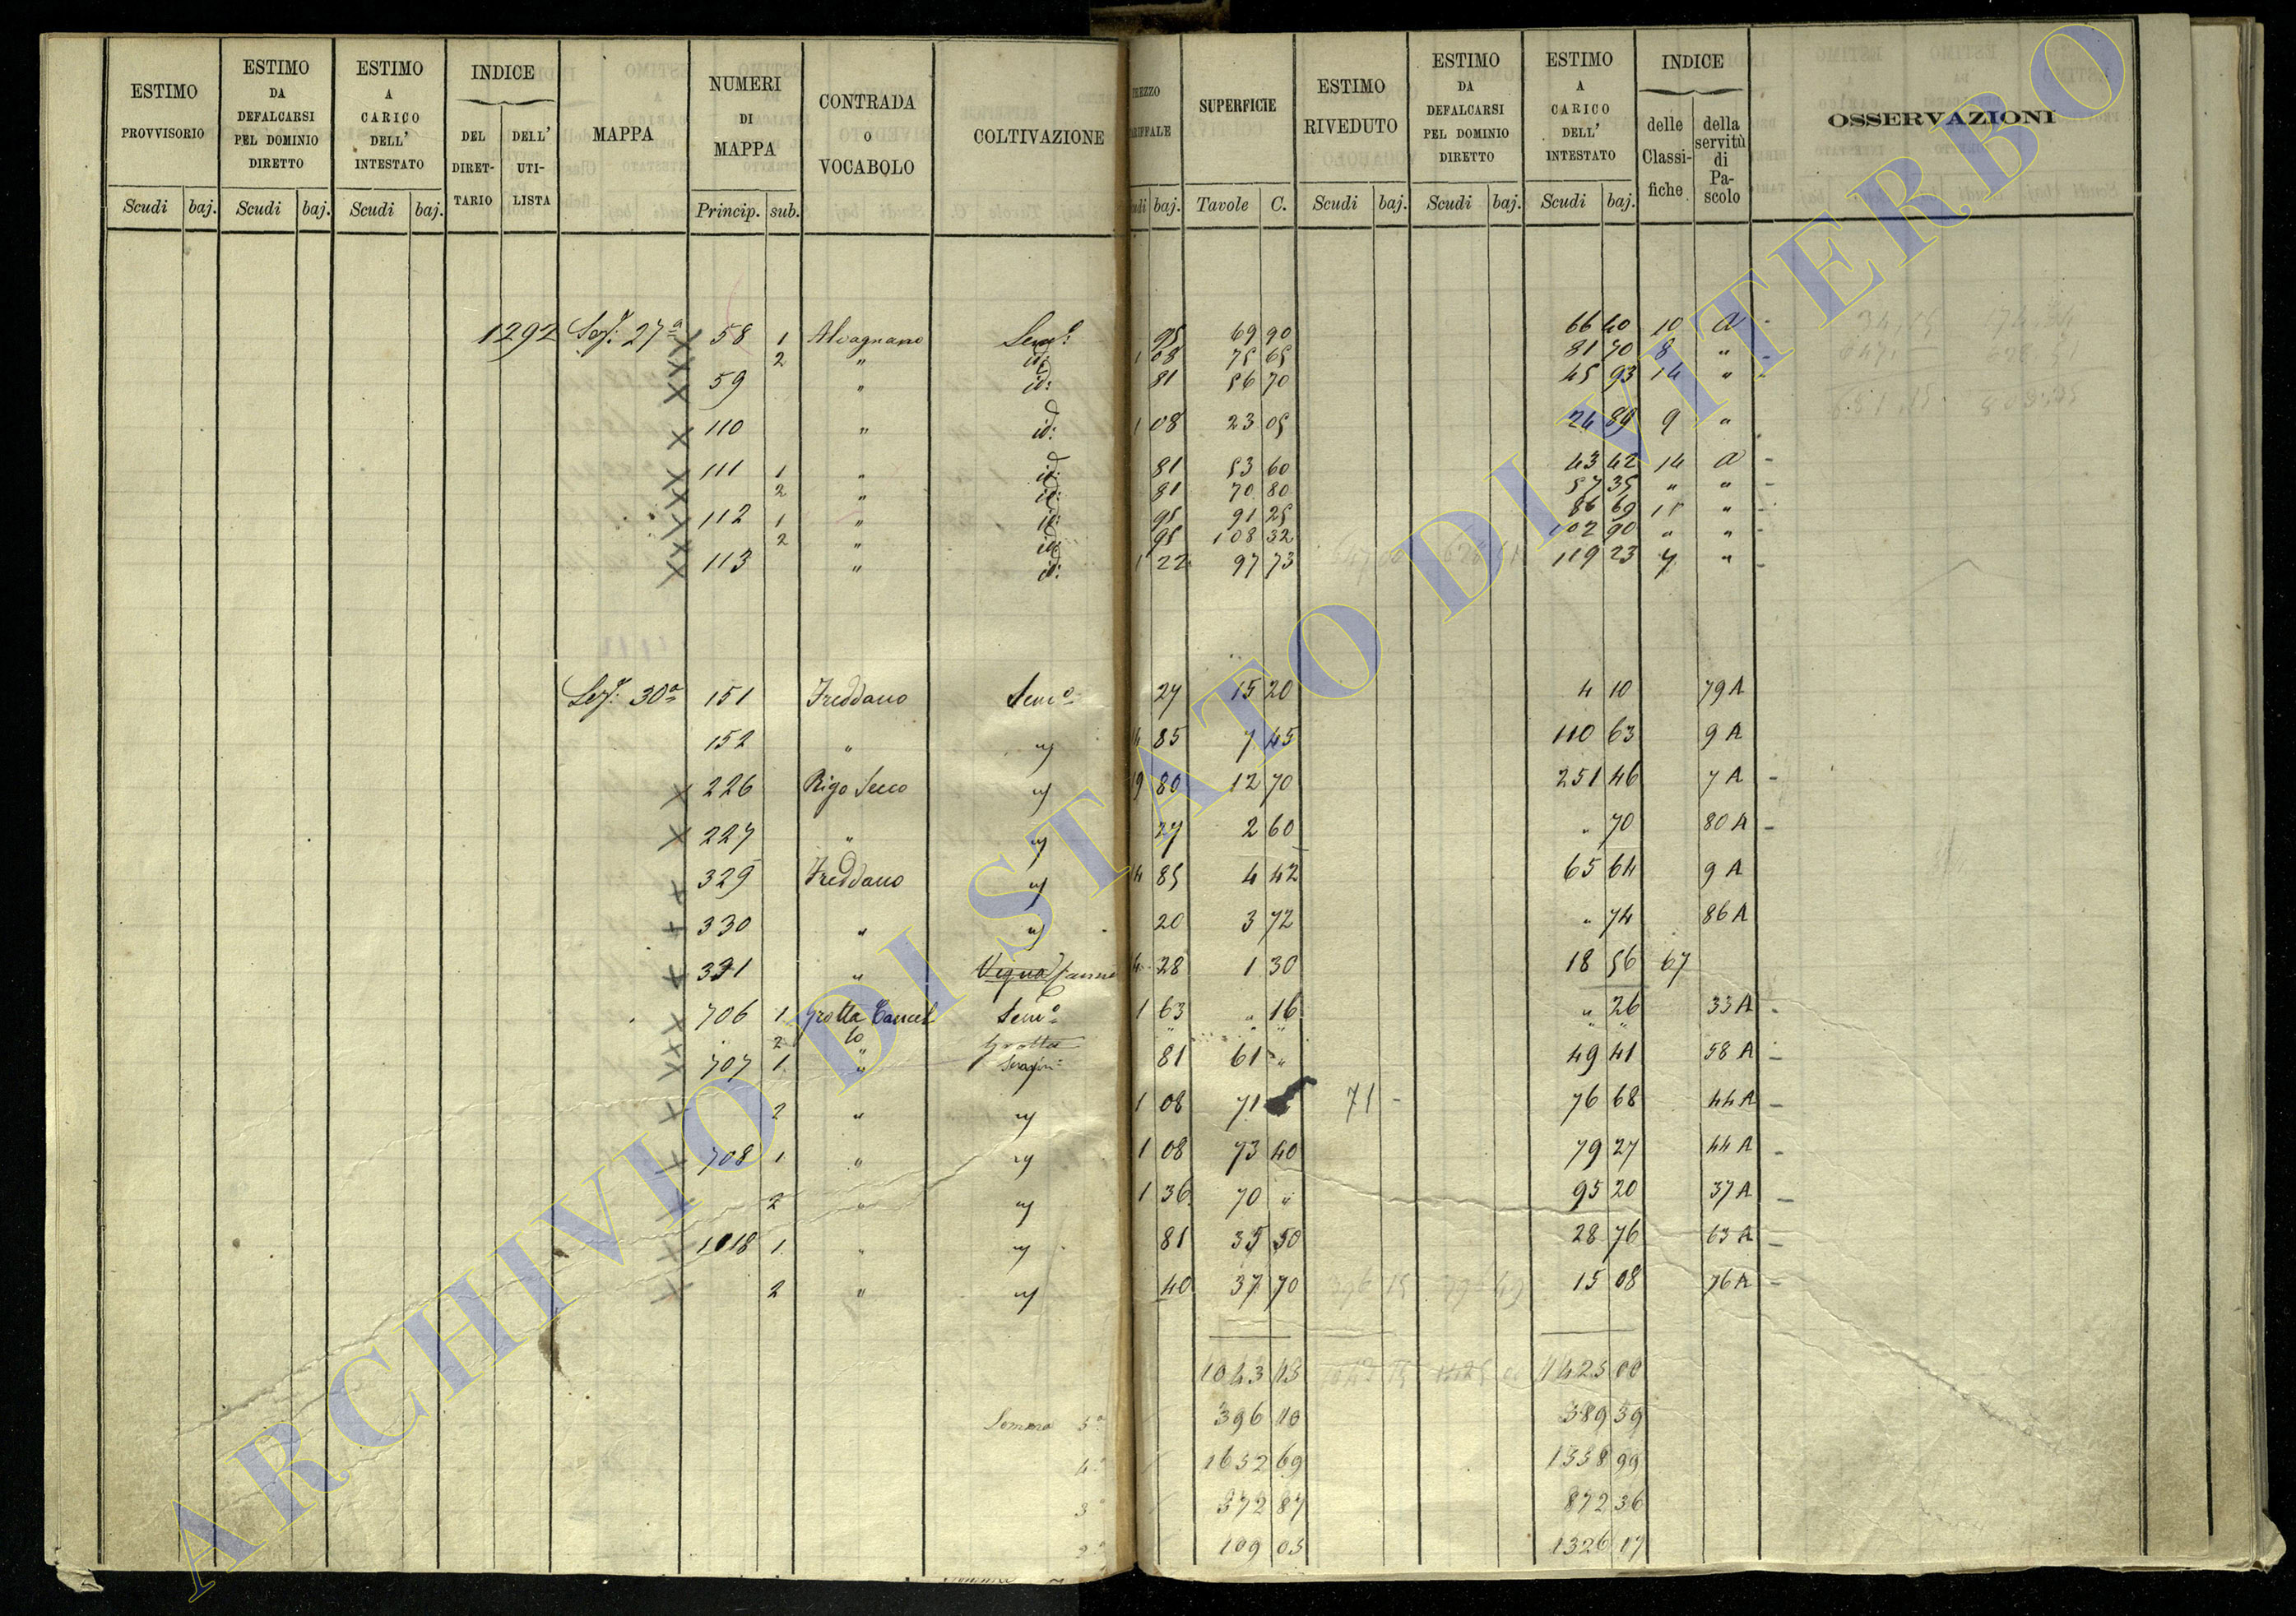 ESTIMO PROVVISORIO | ESTIMO DA DEFALCARSI PEL DOMINIO DIRETTO | ESTIMO A CARICO DELL' INTESTATO | INDICE DEL DIRETTARIO | DELL' UTILISTA | MAPPA | NUMERI DI MAPPA | CONTRADA O VOCABOLO | COLTIVAZIONE | SUPERFICIE | ESTIMO RIVEDUTO | ESTIMO DA DEFALCARSI PEL DOMINIO DIRETTO | ESTIMO A CARICO DELL' INTESTATO | INDICE delle Classifiche | della servitù di Pascolo | OSSERVAZIONI
Scudi baj. | Scudi baj. | Scudi baj. | Princip. sub. | baj. | Tavole C. | Scudi baj. | Scudi baj. | Scudi baj.
1292 27ª 58 1 Alvagnano Sem.º 95 69 90 66 40 10 a
2 " id: 1 08 75 65 81 70 8 "
59 " id: 81 56 70 45 93 14 "
110 " id: 1 08 23 05 24 89 9 "
111 1 " id: 81 53 60 43 42 14 a
2 " id: 81 70 80 57 35 " "
112 1 " id: 95 91 25 86 69 11 "
2 " id: 95 108 32 102 90 " "
113 " id: 1 22 97 73 119 23 7 "
30ª 151 Freddano Sem.º 27 15 20 4 10 79 A
152 " " 85 7 45 110 63 9 A
226 Rigo Secco " 19 80 12 70 251 46 7 A
227 " " 27 2 60 " 70 80 A
329 Freddano " 85 4 42 65 64 9 A
330 " " 20 3 72 " 74 86 A
331 " Vigna 28 1 30 18 56 67
706 1 Grotta Cancel Sem.º 1 63 " 16 " 26 33 A
2 lo Grotta " " " " "
707 1 " 81 61 " 49 41 58 A
2 " " 1 08 71 71 - 76 68 44 A
708 1 " " 1 08 73 40 79 27 44 A
2 " " 1 36 70 " 95 20 37 A
1018 1 " " 81 35 50 28 76 63 A
2 " " 40 37 70 15 08 76 A
1043 15 1425 00
Somma 5ª 396 10 389 39
4ª 1652 69 1338 99
3ª 372 87 872 36
2ª 109 05 1326 17
ARCHIVIO DI STATO DI VITERBO